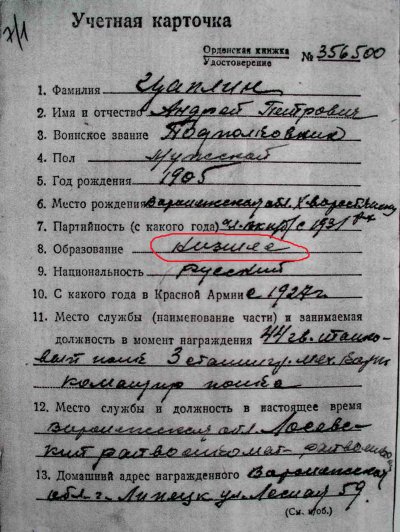 Учетная карточка
Орденская книжка
Удостоверение № 356500
1. Фамилия Цаплин
2. Имя и отчество Андрей Петрович
3. Воинское звание Подполковник
4. Пол Мужской
5. Год рождения 1905
6. Место рождения Воронежская обл.
7. Партийность (с какого года) с 1931
8. Образование низшее
9. Национальность русский
10. С какого года в Красной Армии с 1927г.
11. Место службы (наименование части) и занимаемая
должность в момент награждения 44 гв. танко-
вый полк 3 сталингр. мех.
командир полка
12. Место службы и должность в настоящее время
Воронежская обл. Лосев-
ский райвоенкомат
13. Домашний адрес награжденного Воронежская
обл. г. Липецк ул. Лесная 59.
(См. н/об.)